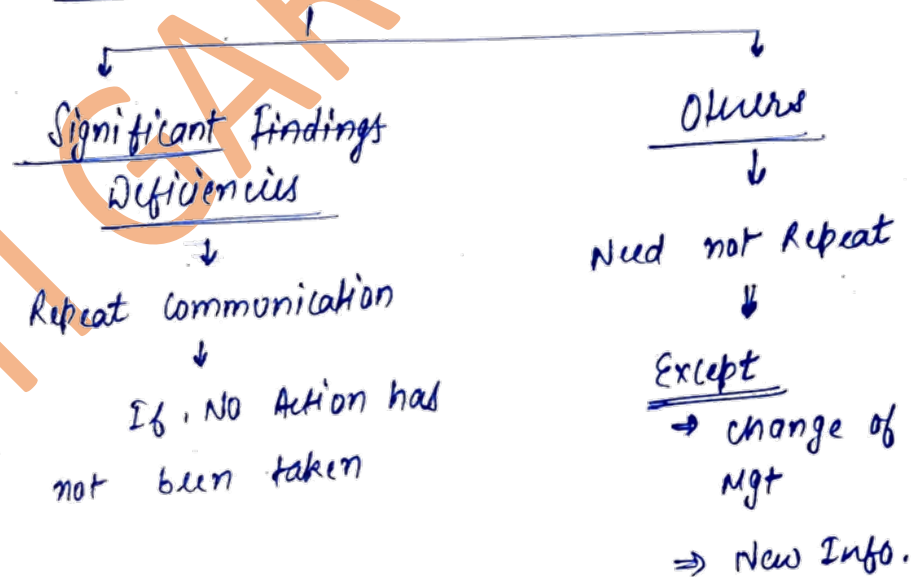 Significant Findings
Deficiencies
Repeat Communication
If, No Action has
not been taken
Others
Need not Repeat
Except
→ change of
Mgt
⇒ New Info.
GAR